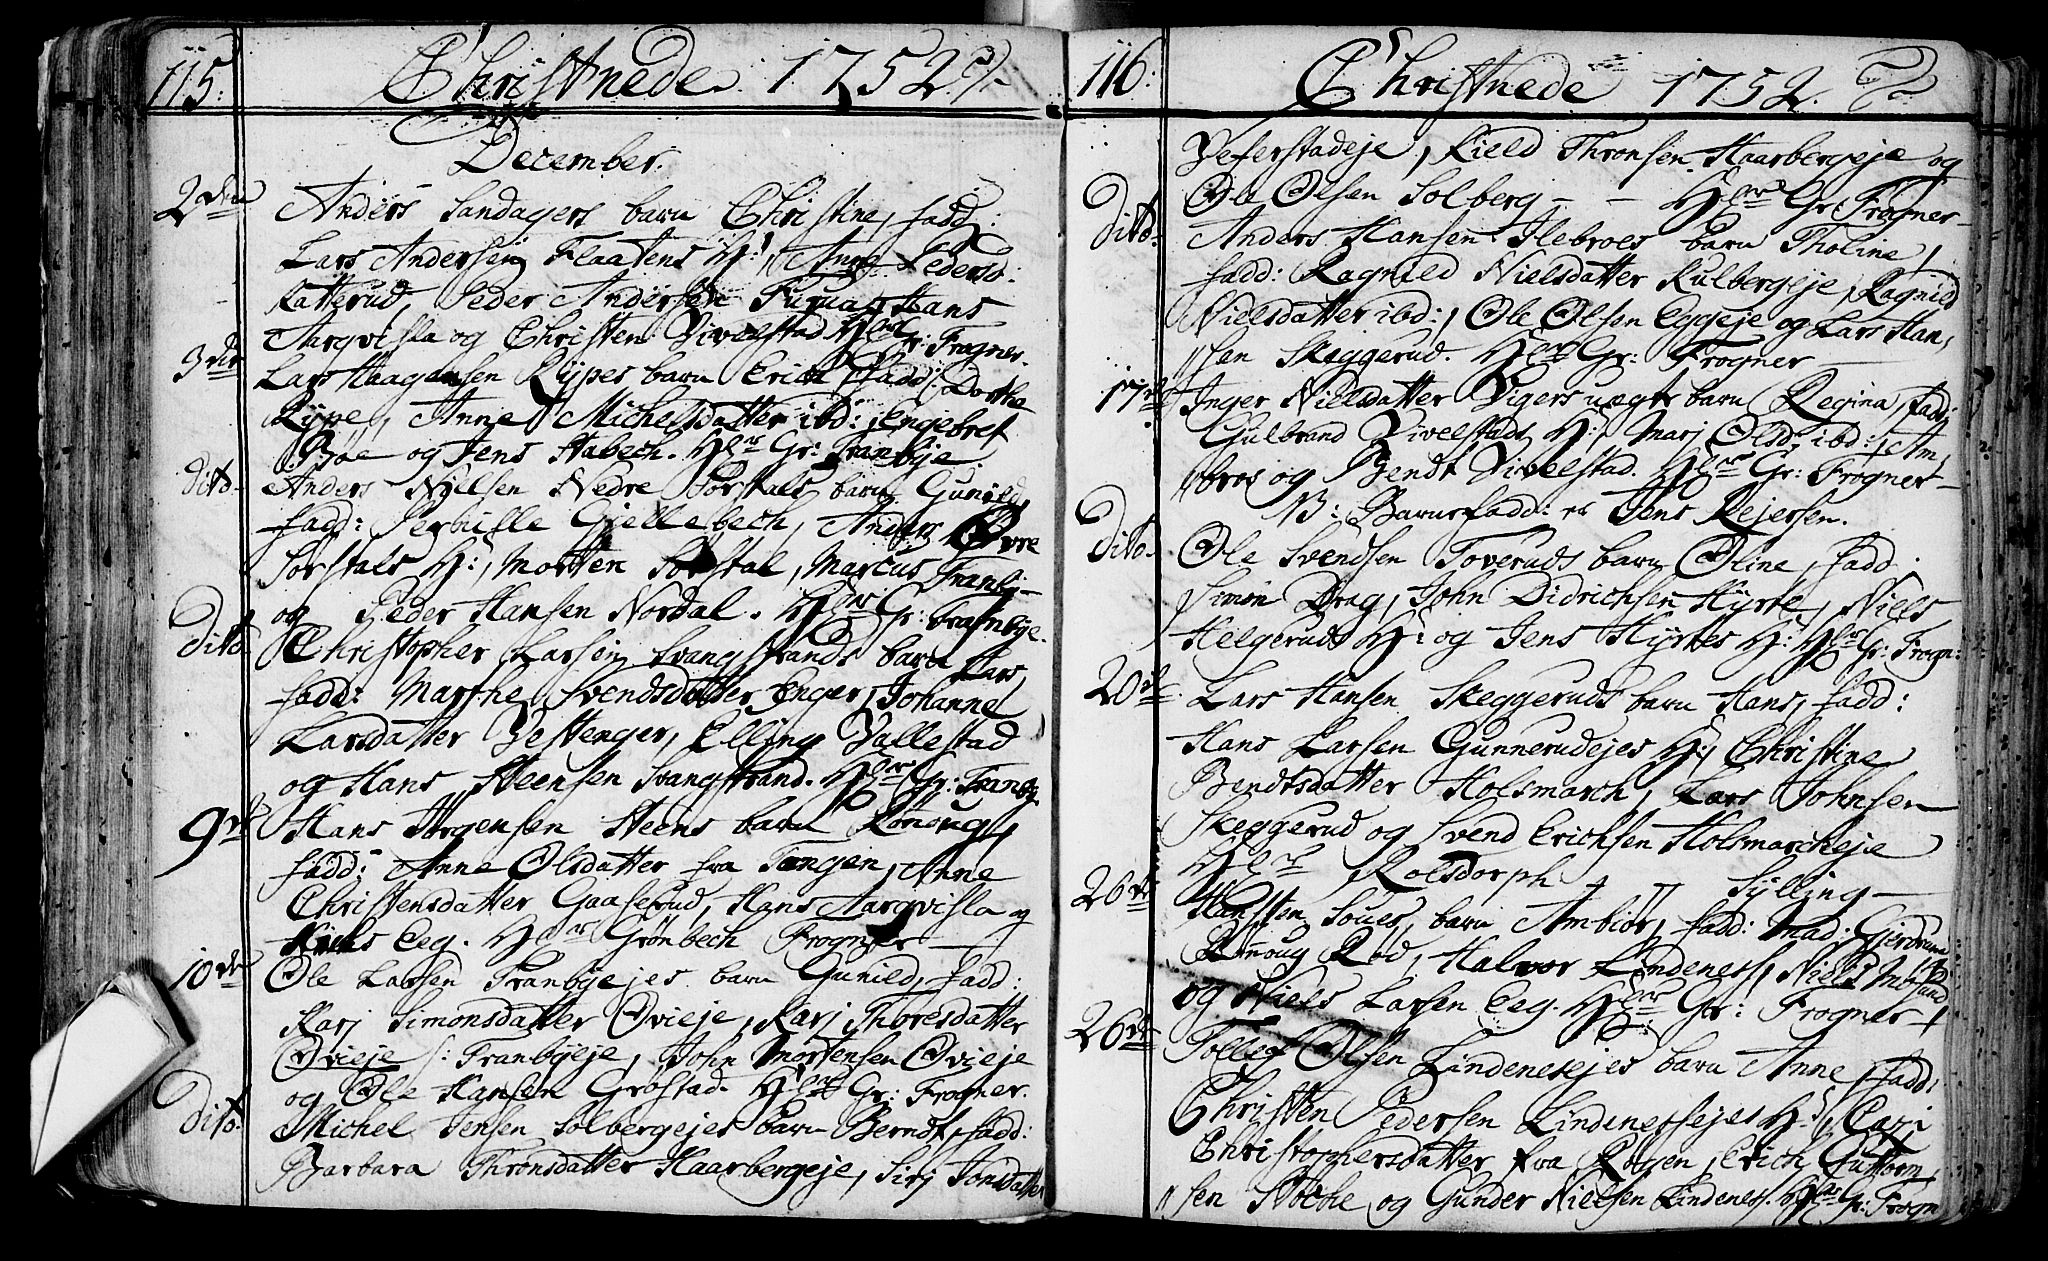 115.
Christnede. 1752.
December.
2den
Anders Sandagers barn Christine, fadd:
Lars Andersen Flaatens H:, Anne Peders:
Katterud, Peder Andersen Hans
Aarqvisla og Christen Vivelstad. Hlmr Gr: Frogner.
3die
Lars Haagensen Rypes barn Erich fadd: Dorthe
Rype, Anne Michelsdatter ibd:, Engebret
Bøe og Jens Habech. Hlmr Gr: Tranbye.
dito.
Anders Nielsen Nedre Sørstals barn Gunild,
fadd: Pernille Giellebech, Anders Øvre
Sørstals H:, Morten Sørstal, Marcus Tranby
og Peder Hansen Nordal. Hlmr Gr: Tranbye.
dito.
Christopher Larsen Svangstrands barn Lars,
fadd: Marthe Svendsdatter Enger, Johanne
Larsdatter Vestenger, Elling Vallestad
og Hans Steensen Svangstrand. Hlmr Gr: Tranby
9de
Hans Jørgensen Steens barn Rønoug,
fadd: Anne Olsdatter fra Tangen, Anne
Christensdatter Gaaserud, Hans Aarqvisla og
Niels Eeg. Hlmr Grønbech Frogner
10de
Ole Larsen Tranbyejes barn Gunild, fadd:
Karj Simonsdatter Ovieje, Karj Thoresdatter
Ovieje /: Tranbyeje, John Mortensen Ovieje
og Ole Hansen Grøstad. Hlmr Gr: Frogner.
dito.
Michel Jensen Solbergejes barn Berndt, fadd:
Barbara Thronsdatter Haarbergeje, Sirj Jonsdatter
116.
Christnede 1752.
Veferstadeje, Kield Thronsen Haarbergeje og
Ole Olsen Solberg - - Hlmr Gr: Frogner
dito.
Anders Hansen Ilebroes barn Tholine,
fadd: Ragnild Nielsdatter Kulbergeje, Ragnild
Nielsdatter ibd:, Ole Olsen Eggeje og Lars Han,
//sen Skeggerud. Hlmr Gr: Frogner
17de
Inger Nielsdatter Vigers uægte barn Regina, fadd:
Gulbrand Vivelstads H:, Marj Olsd: ibd:, Am,
//bros og Bendt Vivelstad. Hlmr Gr: Frogner
NB: Barnefadd: er Jens Rejersen.
dito.
Ole Svendsen Toveruds barn Oline, fadd:
Simon Drag, John Didrichsen Hyrte, Niels
Helgeruds H: og Jens Hyrtes H: Hlmr Gr: Frogn:
20de
Lars Hansen Skeggeruds barn Hans, fadd:
Hans Larsen Gunnerudejes H:, Christine
Bendtsdatter Holsmarch, Lars Johnsen
Skeggerud og Svend Erichsen Holsmarcheje
Hlmr Rolsdorph Sylling
26de
Karsten Soues, barn Ambiør, fadd: Mad: Gierdrum,
Rønnoug Rød, Halvor Lindenes, Niels
og Niels Larsen Eeg. Hlmr Gr: Frogner
26de
Tollef Olsen Lindenesejes barn Anne, fadd:
Christen Pedersen Lindenessejes H:, Cari
Christophersdatter fra Røgen, Erich Guttorm,
//sen Støche og Gunder Nielsen Lindenes. Hlmr Gr: Frogn